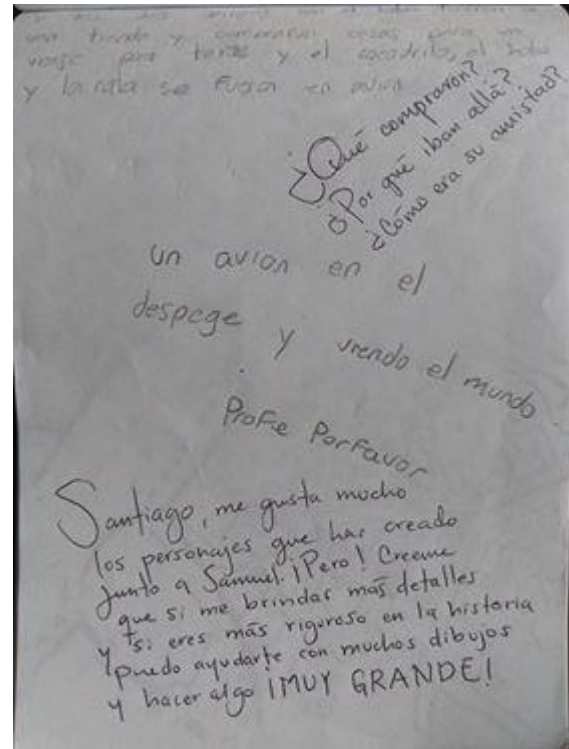 una tienda y compraron cosas para un
viaje para y el cocodrilo, el lobo
y la rata se fugan en avion
¿Qué compraron?
¿Por qué iban allá?
¿Cómo era su amistad?
un avion en el
despege y viendo el mundo
Profe Porfavor
Santiago, me gusta mucho
los personajes que has creado
junto a Samuel. ¡Pero! Creeme
que si me brindas más detalles
y si eres más riguroso en la historia
puedo ayudarte con muchos dibujos
y hacer algo ¡MUY GRANDE!